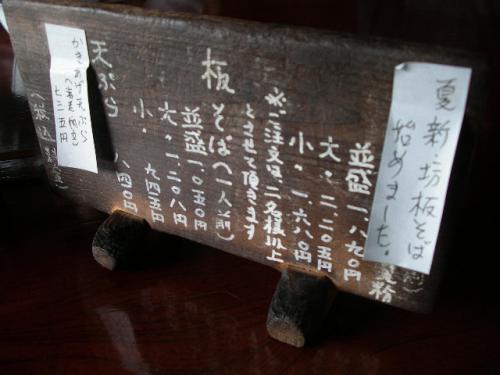 夏新・坊板そば
始めました。
並盛一、八九〇円
大・二二〇五円
小・一、六八〇円
※ご注文は二名様以上
とさせて頂きます
板そば(一人前)
並盛一、〇五〇円
大・一二〇八円
小・九四五円
天ぷら八四〇円
かきあげ天ぷら
七三五円